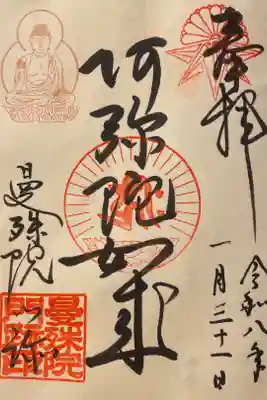 奉拝
令和八年
一月三十一日
阿弥陀如来
曼殊院
曼殊院
門跡印